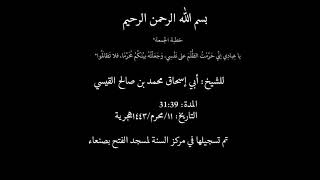 بسم الله الرحمن الرحيم
خطبة الجمعة"
يا عِبادي إنِّي حَرَّمْتُ الظُّلْمَ على نَفْسِي، وَجَعَلْتُهُ بيْنَكُمْ مُحَرَّمًا، فلا تَظالَمُوا"
للشيخ: أبي إسحاق محمد بن صالح القيسي
المدة: 31:39
التاريخ: ١١/محرم/١٤٤٣هجرية
تم تسجيلها في مركز السنة لمسجد الفتح بصنعاء